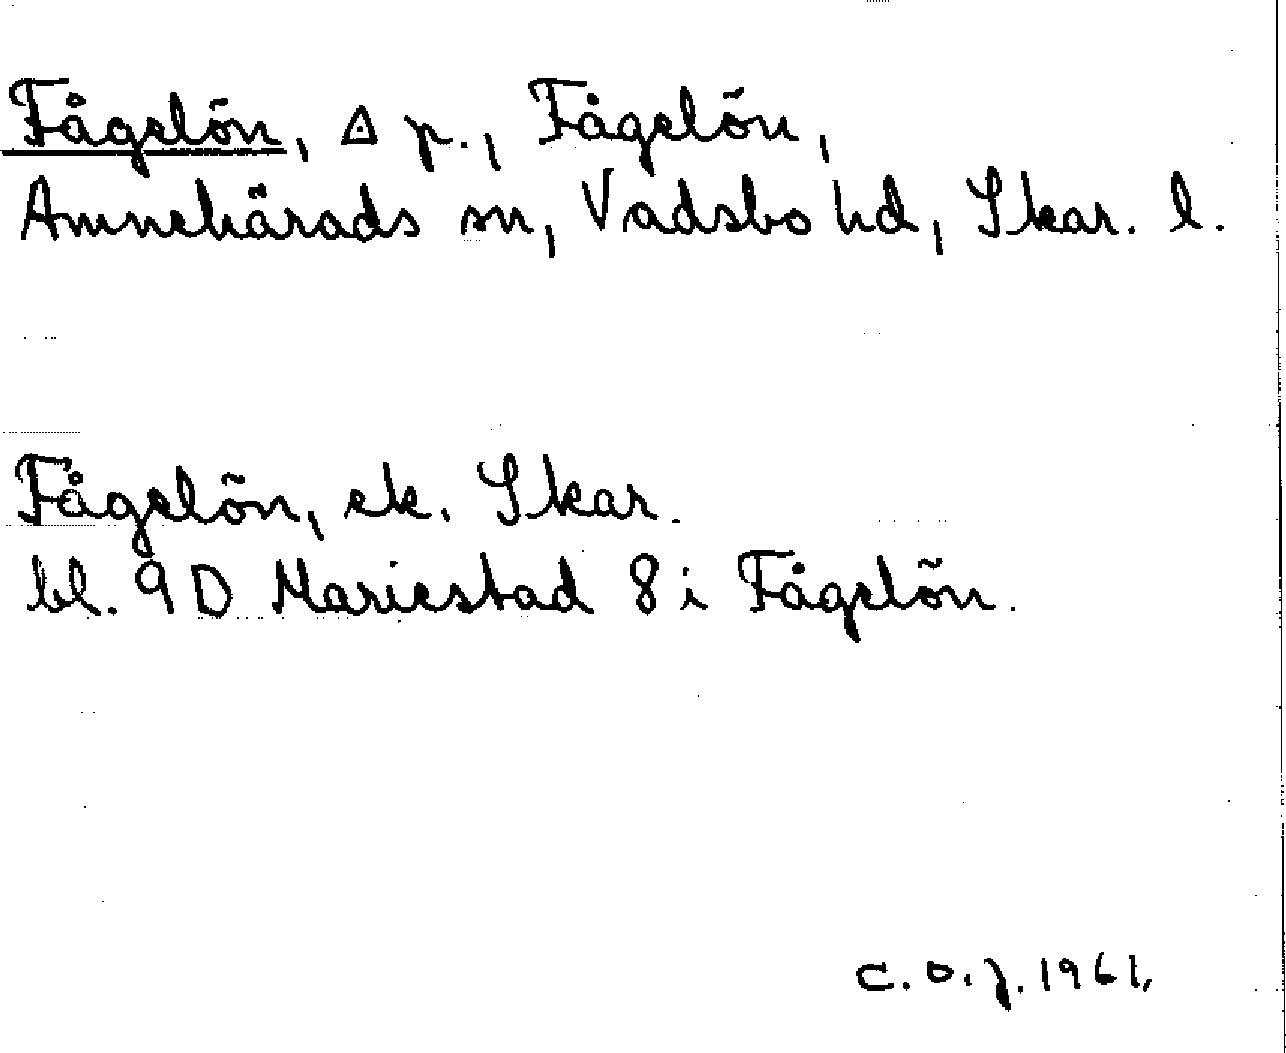 Fågelön, △ p., Fågelön,
Amnehärads sn, Vadsbo hd, Skar. l.
Fågelön, ek. Skar.
bl. 9 D Mariestad 8 i Fågelön.
C.O.J. 1961.